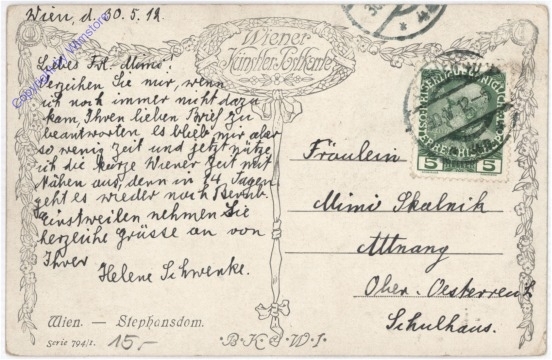 Wien, d. 30.5.12
Wiener
Künstler-Postkarte
Liebes Frl. Mimi!
Verzeihen Sie mir, wenn
ich noch immer nicht dazu
kam, Ihren lieben Brief zu
beantworten es blieb mir aber
so wenig Zeit und jetzt nütze
ich die kurze Wiener Zeit mit
Nähen aus, denn in 14 Tagen
geht es wieder nach
Einstweilen nehmen Sie
herzliche Grüsse an von
Ihrer
Helene Schwenke.
Fräulein
Mimi Skalnik
Attnang
Ober-Oesterreich
Schulhaus.
5 5
Wien. — Stephansdom.
Serie 794/2.
15,-
B·K·W·I·